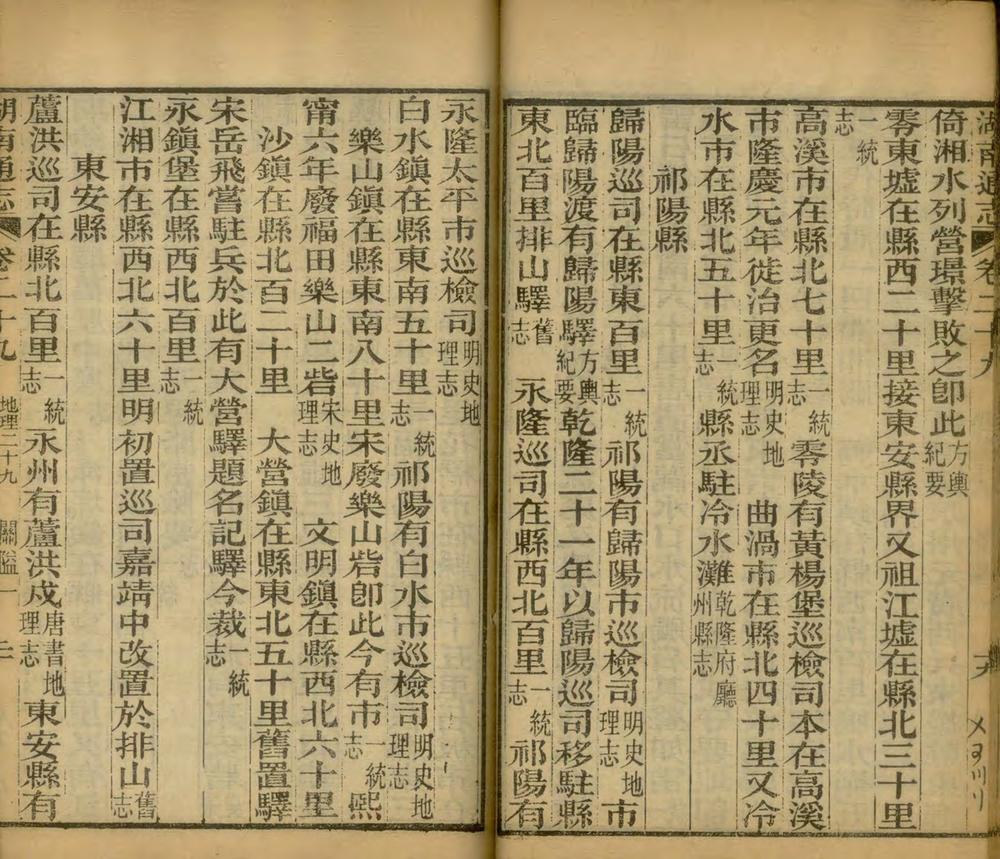 湖南通志 卷二十九
倚湘水列營璟擊敗之卽此方輿紀要
零東墟在縣西二十里接東安縣界又祖江墟在縣北三十里
一統志
高溪市在縣北七十里一統志零陵有黃楊堡巡檢司本在高溪
市隆慶元年徙治更名明史地理志 曲渦市在縣北四十里又冷
水市在縣北五十里一統志縣丞駐冷水灘乾隆府廳州縣志
祁陽縣
歸陽巡司在縣東百里一統志祁陽有歸陽市巡檢司明史地理志市
臨歸陽渡有歸陽驛方輿紀要乾隆二十一年以歸陽巡司移駐縣
東北百里排山驛舊志 永隆巡司在縣西北百里一統志祁陽有
永隆太平市巡檢司明史地理志
白水鎮在縣東南五十里一統志祁陽有白水市巡檢司明史地理志
樂山鎮在縣東南八十里宋廢樂山砦卽此今有市一統志熙
甯六年廢福田樂山二砦宋史地理志 文明鎮在縣西北六十里
沙鎮在縣北百二十里 大營鎮在縣東北五十里舊置驛
宋岳飛嘗駐兵於此有大營驛題名記驛今裁一統志
永鎮堡在縣西北百里一統志
江湘市在縣西北六十里明初置巡司嘉靖中改置於排山舊志
東安縣
蘆洪巡司在縣北百里一統志永州有蘆洪戍唐書地理志東安縣有
湖南通志 卷二十九 地理二十九 關隘一